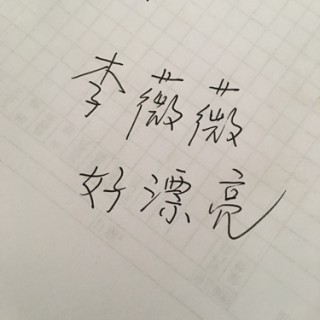 李薇薇
好漂亮